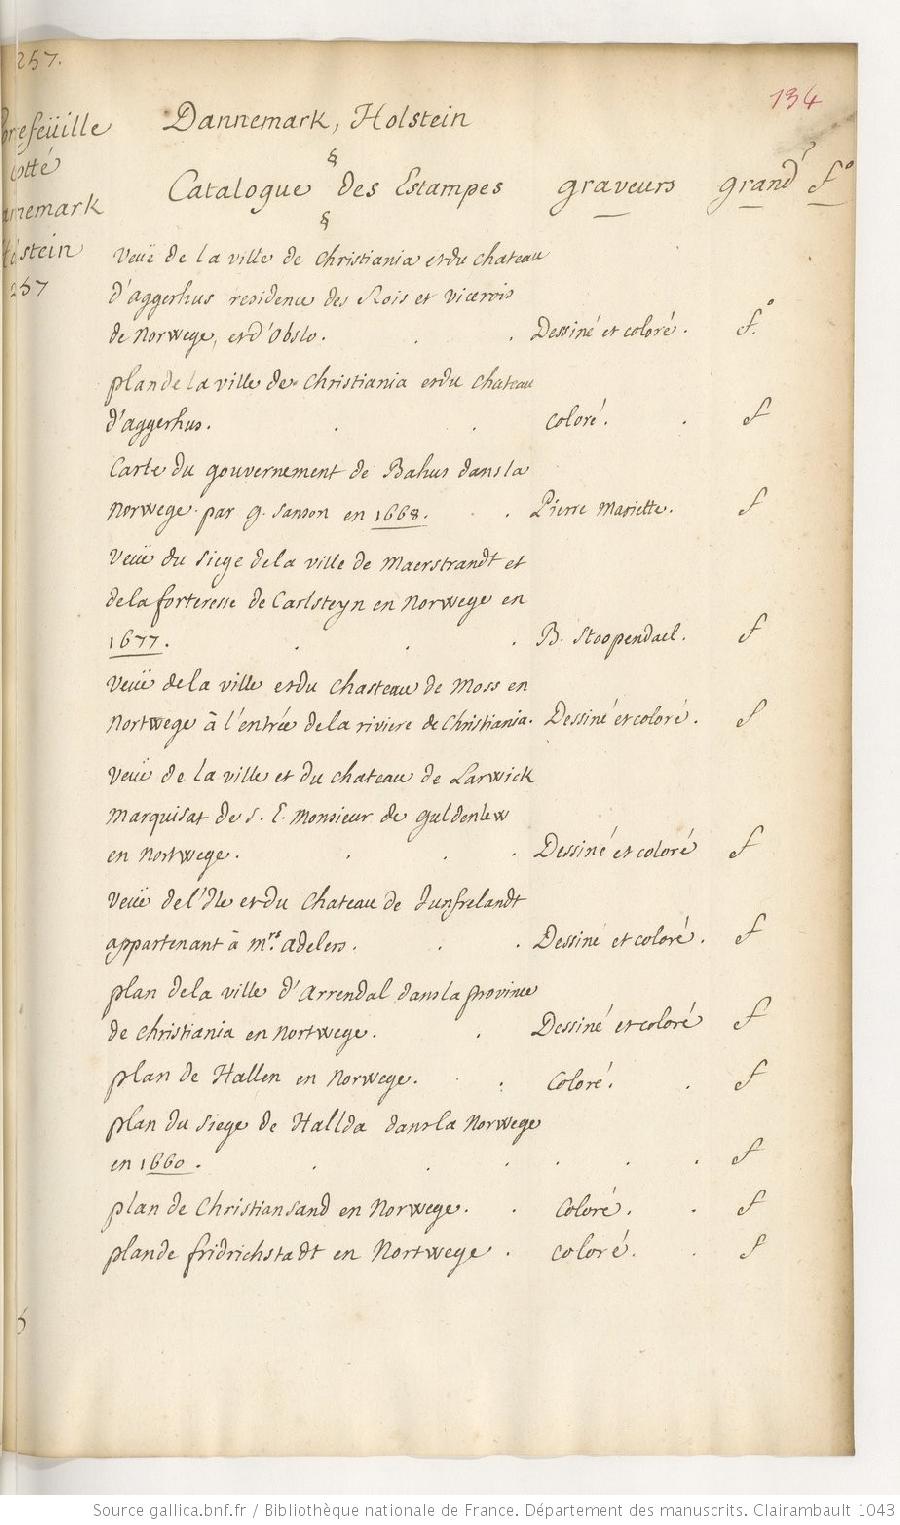 257.
134
Portefeüille
cotté
Dannemark
Holstein
257
Dannemark, Holstein
§
Catalogue des Estampes graveurs grandr fo
§
Veuë de la ville de Christiania et du chateau
d'aggerhus residence des Rois et vicerois
de Norwege, et d'Obslo. . . Dessiné et coloré. fo
plan de la ville de Christiania et du chateau
d'aggerhus. . . coloré. . f
Carte du gouvernement de Bahus dans la
Norwege par g. Sanson en 1668. . . Pierre Mariette. f
Veuë du siege de la ville de Maerstrandt et
de la forteresse de Carlsteyn en Norwege en
1677. . . . B. Stoopendael. f
Veuë de la ville et du chasteau de Moss en
Nortwege à l'entrée de la riviere de Christiania. Dessiné et coloré. f
Veuë de la ville et du chateau de Larwick
Marquisat de S. E. Monsieur de guldenlew
en Nortwege. . . . Dessiné et coloré f
Veuë de l'Ile et du Chateau de Junfrelandt
appartenant à mrs. adelers. . . Dessiné et coloré. f
plan de la ville d'Arrendal dans la province
de Christiania en Nortwege. . Dessiné et coloré f
plan de Hallen en Norwege. . . coloré. . f
plan du siege de Hallda dans la Norwege
en 1660. . . . . . . f
plan de Christiansand en Norwege. . coloré. . f
plan de fridrichstadt en Nortwege. . coloré. . f
Source gallica.bnf.fr / Bibliothèque nationale de France. Département des manuscrits. Clairambault 1043